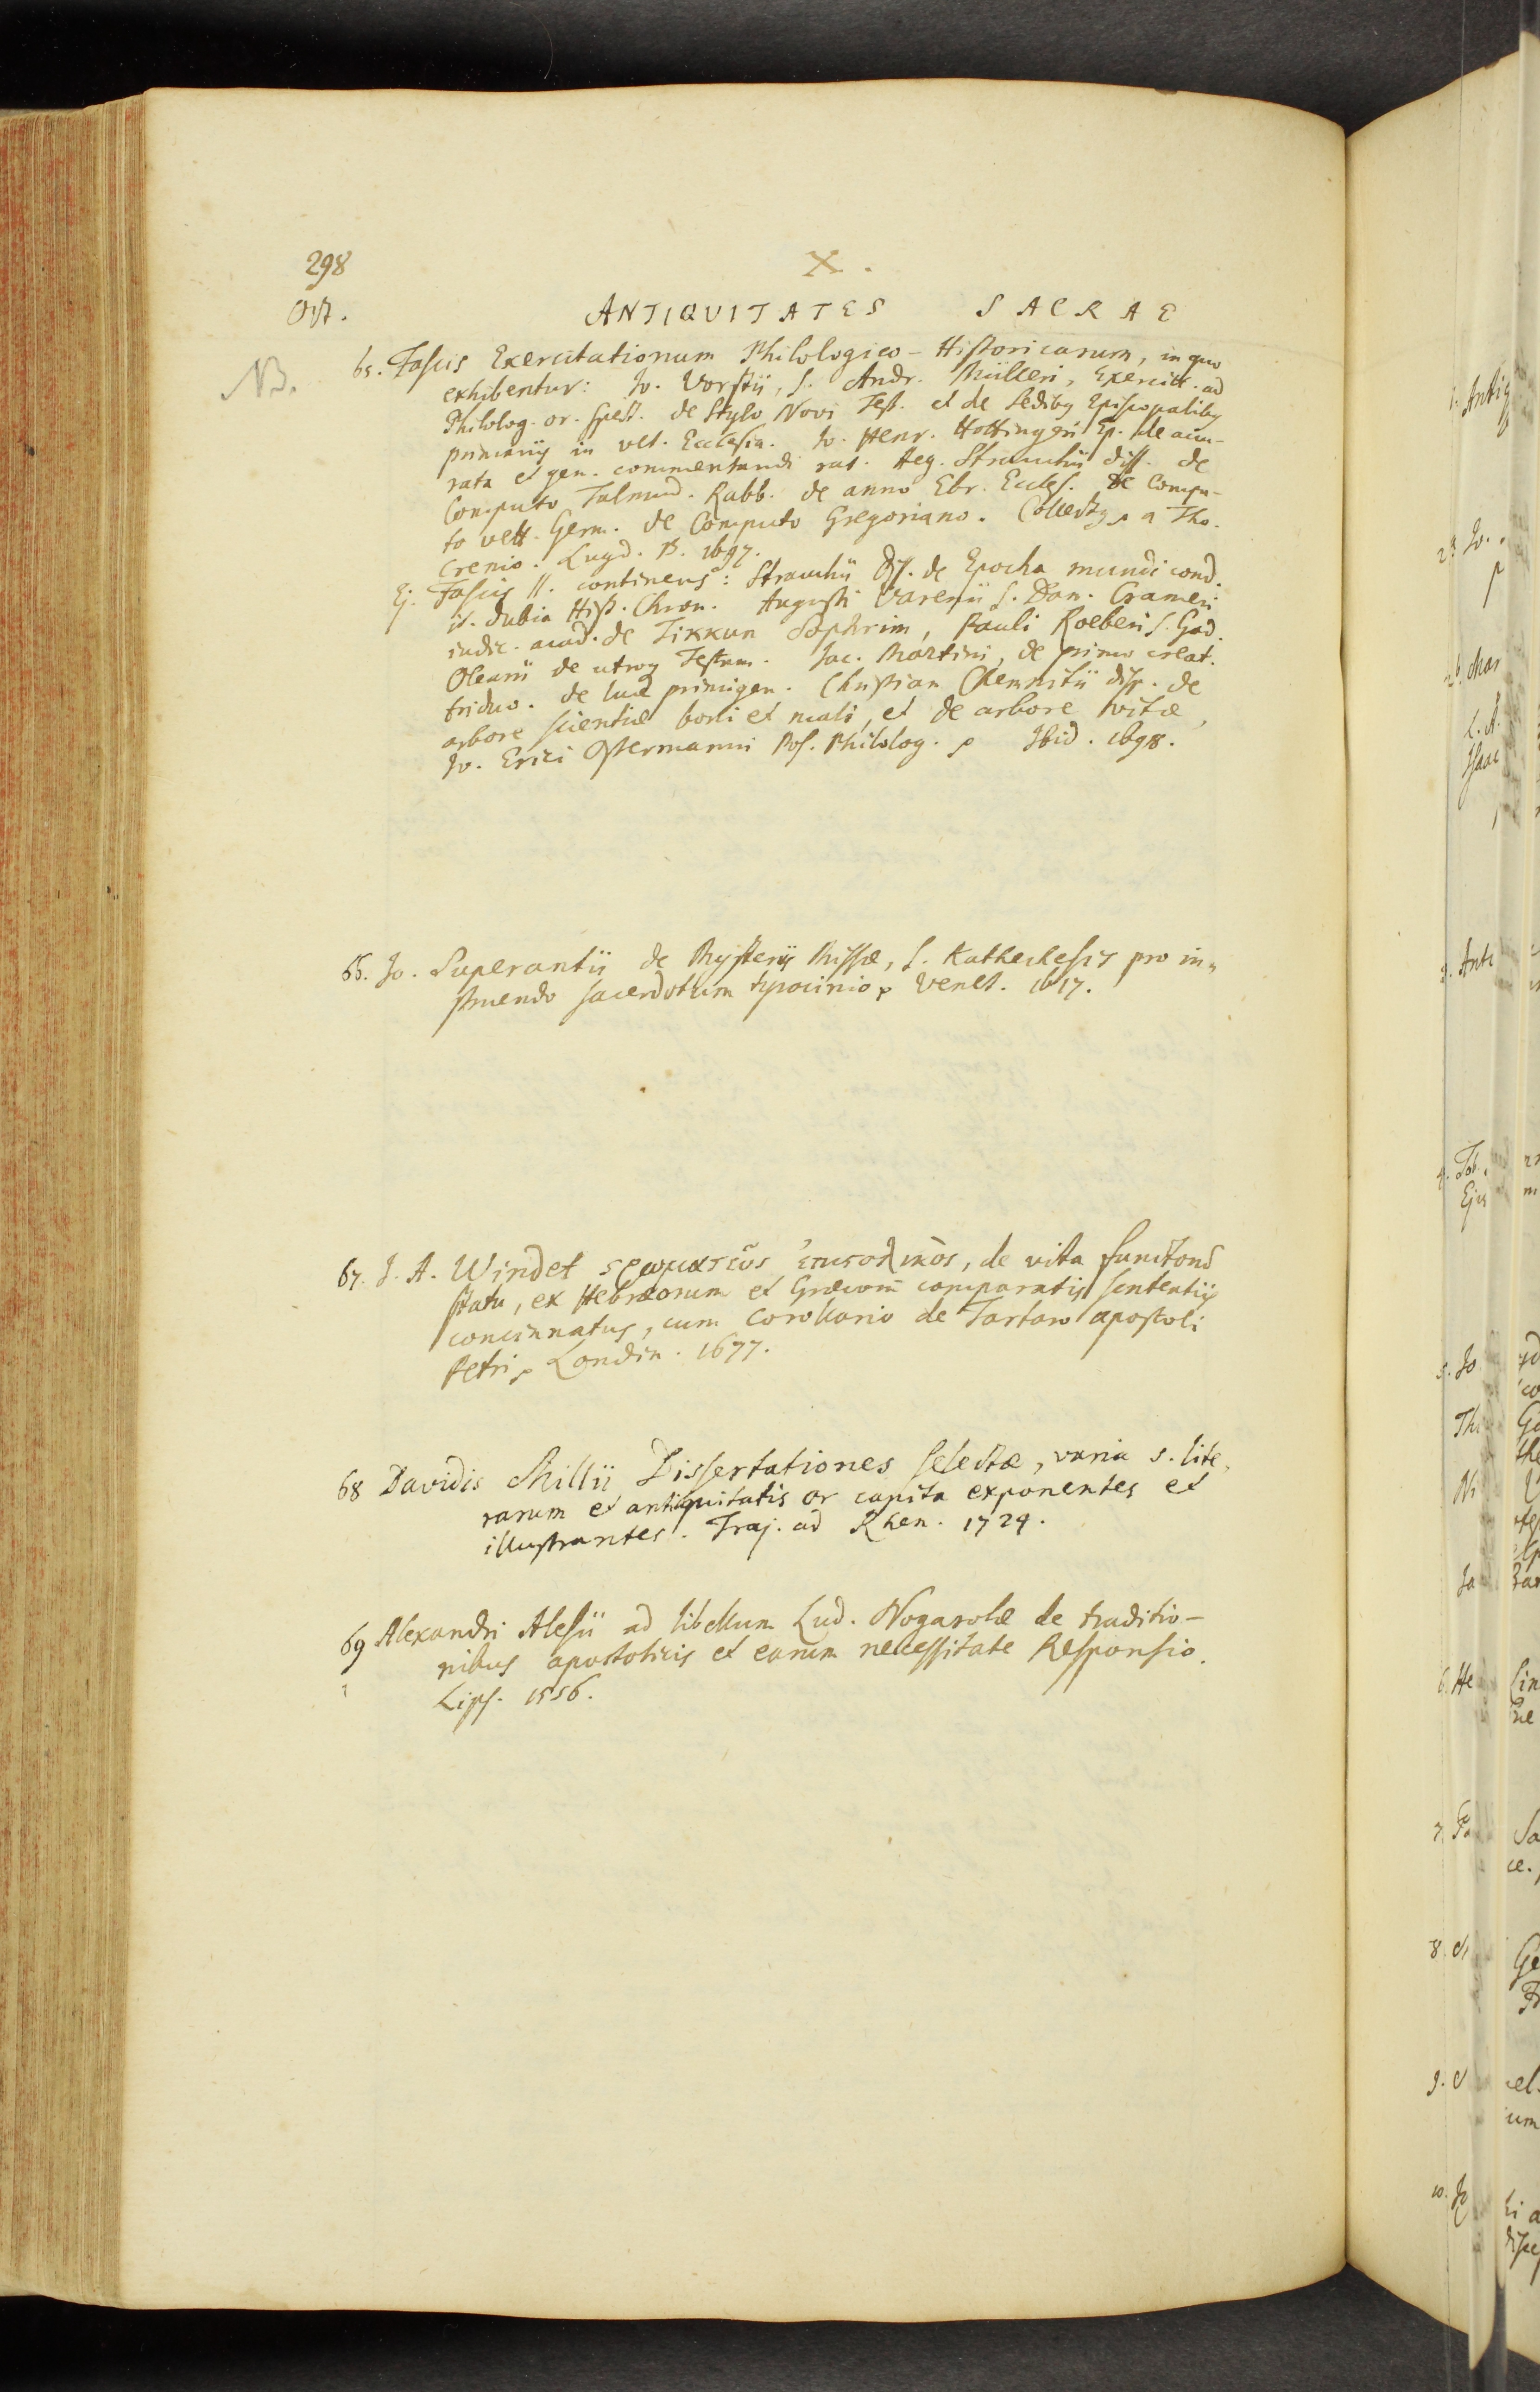 298
X.
Oct.
ANTIQUITATES SACRAE
NB.
65. Fascis Exercitationum Philologico-Historicarum, in quo
exhibentur: Jo. Vorstii, s. Andr. Mülleri, Exercitt. ad
Philolog. or. spect. de Stylo Novi Test. et de Sedibus Episcopalibus
primariis in vet. Ecclesia. Jo. Henr. Hottingeri Ep. de accu-
rata et gen. commentandi rat. Aeg. Strauchii diss. de
Computo Talmud. Rabb. de anno Ebr. Eccles. de Compu-
to vett. Germ. de Computo Gregoriano. Collectus a Tho.
Crenio. Lugd. B. 1697.
Ej. Fascis II. continens: Strauchii Diss. de Epocha mundi cond.
it. dubia Hist. Chron. Augusti Varenii s. Dan. Crameri
indic. acad. de Tikkun Sophrim, Pauli Roeberi s. God.
Olearii de utroq Testam. Jac. Martini, de primo creat.
triduo. de luce primigen. Christian Chemnitii diss. de
arbore scientiæ boni et mali, et de arbore vitæ,
Jo. Erici Ostermanni Pos. Philolog. Ibid. 1698.
66. Jo. Superantii de Mysteriis Missæ, s. Kathechesis pro in-
struendo sacerdotum tyrocinio Venet. 1617.
67. J. A. Windet ςρωματεὺς ἐπιςολικὸς, de vita functorum
statu, ex Hebræorum et Græcorum comparatis sententiis
concinnatus, cum Corollario de Tartaro apostoli
Petri Londin. 1677.
68 Davidis Millii Dissertationes selectæ, varia s. lite-
rarum et antiquitatis or capita exponentes et
illustrantes. Traj. ad Rhen. 1724.
69 Alexandri Alesii ad libellum Lud. Nogarolæ de traditio-
nibus apostolicis et earum necessitate Responsio.
Lips. 1556.